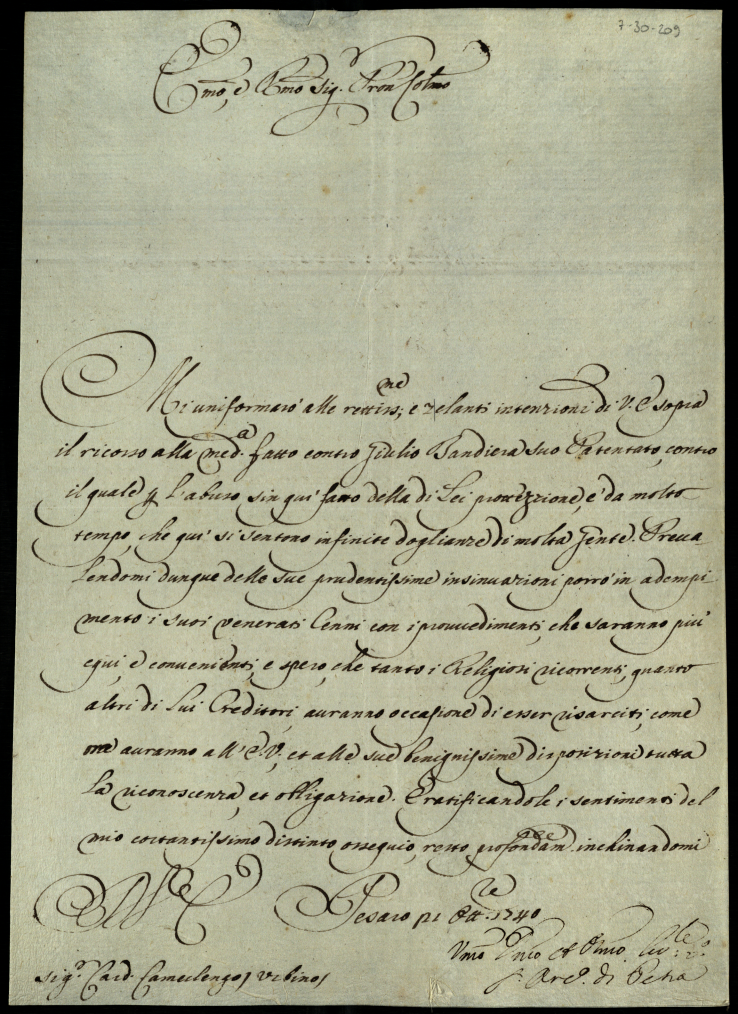 7-30-209
Emo, e Rmo Sig.r Pron Colmo
Mi uniformarò alle rettiss.me; e zelanti intenzioni di V. E sopra
il ricorso alla med.a fatto contro Giulio Tandiera suo Patentato, contro
il quale p l'abuso sin qui fatto della di Lei protezzione, è da molto
tempo, che qui si sentono infinite doglianze di molta Gente. Preva-
lendomi dunque delle sue prudentissime insinuazioni porrò in adempi
mento i suoi venerati Cenni con i provvedimenti, che saranno più
equi, e convenienti, e spero, che tanto i Religiosi ricorrenti, quanto
altri di Lui Creditori, auranno occasione di esser risarciti, come
ne auranno all'E. V., et alle sue benignissime disposizioni tutta
la riconoscenza, et obbligazione. E ratificandole i sentimenti del
mio costantissimo distinto ossequio, resto profondam.te inchinandomi
All' E V
Pesaro p.i Ott.re 1740
Vmo Dmo et Obmo
Sig.r Card. Camerlengo / Urbino /
Arc.o di Petra